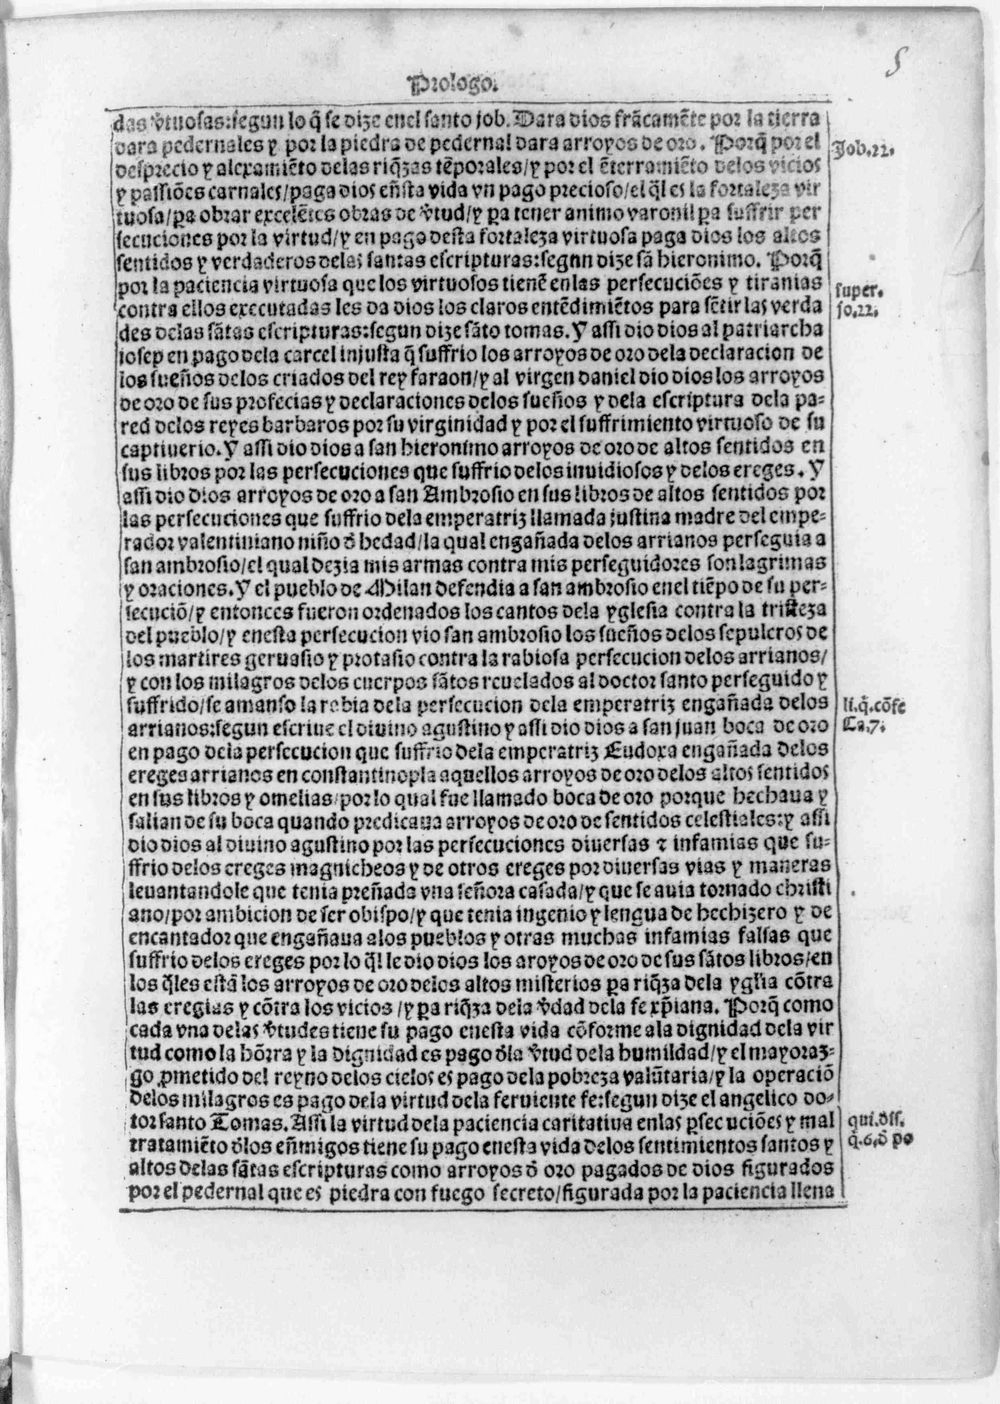 5
Prologo.
das v̄tuosas:segun lo q̄ se dize enel santo job. Dara dios frācamēte por la tierra
dara pedernales y por la piedra de pedernal dara arroyos de oro. Porq̄ por el
Job.22.
desprecio y alexamiēto delas riq̄zas tēporales/y por el ēterramiēto delos vicios
y passiōes carnales/paga dios eñsta vida vn pago precioso/el q̄l es la fortaleza vir
tuosa/pa obrar excelētes obras de v̄tud/y pa tener animo varonil pa suffrir per
secuciones por la virtud/y en pago desta fortaleza virtuosa paga dios los altos
sentidos y verdaderos delas santas escripturas:segun dize sā hieronimo. Porq̄
por la paciencia virtuosa que los virtuosos tienē enlas persecuciōes y tiranias
super.
contra ellos executadas les da dios los claros entēdimiētos para sētir las verda
Jo.22.
des delas sātas escripturas:segun dize sāto tomas. Y assi dio dios al patriarcha
josep en pago dela carcel injusta q̄ suffrio los arroyos de oro dela declaracion de
los sueños delos criados del rey faraon/y al virgen daniel dio dios los arroyos
de oro de sus profecias y declaraciones delos sueños y dela escriptura dela pa-
red delos reyes barbaros por su virginidad y por el suffrimiento virtuoso de su
captiuerio. Y assi dio dios a san hieronimo arroyos de oro de altos sentidos en
sus libros por las persecuciones que suffrio delos inuidiosos y delos ereges. Y
assi dio dios arroyos de oro a san Ambrosio en sus libros de altos sentidos por
las persecuciones que suffrio dela emperatriz llamada justina madre del empe-
rador valentiniano niño d̄ hedad/la qual engañada delos arrianos perseguia a
san ambrosio/el qual dezia mis armas contra mis perseguidores son lagrimas
y oraciones. Y el pueblo de Milan defendia a san ambrosio enel tiēpo de su per-
secuciō/y entonces fueron ordenados los cantos dela yglesia contra la tristeza
del pueblo/y enesta persecucion vio san ambrosio los sueños delos sepulcros de
los martires geruasio y protasio contra la rabiosa persecucion delos arrianos/
y con los milagros delos cuerpos sātos reuelados al doctor santo perseguido y
suffrido/se amanso la rabia dela persecucion dela emperatriz engañada delos
li.q̄.cōfe
arrianos:segun escriue el diuino agustino y assi dio dios a san juan boca de oro
Ca.7.
en pago dela persecucion que suffrio dela emperatriz Eudoxa engañada delos
ereges arrianos en constantinopla aquellos arroyos de oro delos altos sentidos
en sus libros y omelias/por lo qual fue llamado boca de oro porque hechaua y
salian de su boca quando predicaua arroyos de oro de sentidos celestiales:y assi
dio dios al diuino agustino por las persecuciones diuersas ⁊ infamias que su-
ffrio delos ereges magnicheos y de otros ereges por diuersas vias y maneras
leuantandole que tenia preñada vna señora casada/y que se auia tornado christi
ano/por ambicion de ser obispo/y que tenia ingenio y lengua de hechizero y de
encantador que engañaua alos pueblos y otras muchas infamias falsas que
suffrio delos ereges por lo q̄l le dio dios los aroyos de oro de sus sātos libros/en
los q̄les estā los arroyos de oro delos altos misterios pa riq̄za dela ygl'ia cōtra
las eregias y cōtra los vicios /y pa riq̄za dela v̄dad dela fe xp̄iana. Porq̄ como
cada vna delas v̄tudes tiene su pago enesta vida cōforme ala dignidad dela vir
tud como la hōrra y la dignidad es pago d̄la v̄tud dela humildad/y el mayoraz-
go pmetido del reyno delos cielos es pago dela pobreza valūtaria/y la operaciō
delos milagros es pago dela virtud dela feruiente fe:segun dize el angelico do-
tor santo Tomas. Assi la virtud dela paciencia caritatiua enlas psecuciōes y mal
qui.d̄ss.
tratamiēto d̄los eñmigos tiene su pago enesta vida delos sentimientos santos y
q̄.6.d̄ po
altos delas sātas escripturas como arroyos d̄ oro pagados de dios figurados
por el pedernal que es piedra con fuego secreto/figurada por la paciencia llena